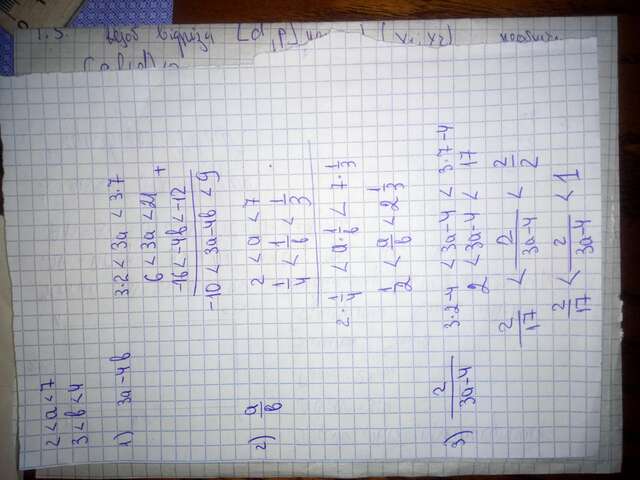 1.3.
2 < a < 7
3 < b < 4
1) 3a - 4b
3·2 < 3a < 3·7
6 < 3a < 21
+
-16 < -4b < -12
-10 < 3a - 4b < 9
2) a/b
2 < a < 7
1/4 < 1/b < 1/3
2·1/4 < a·1/b < 7·1/3
1/2 < a/b < 2 1/3
3) 2/(3a-4)
3·2-4 < 3a-4 < 3·7-4
2 < 3a-4 < 17
2/17 < 2/(3a-4) < 2/2
2/17 < 2/(3a-4) < 1